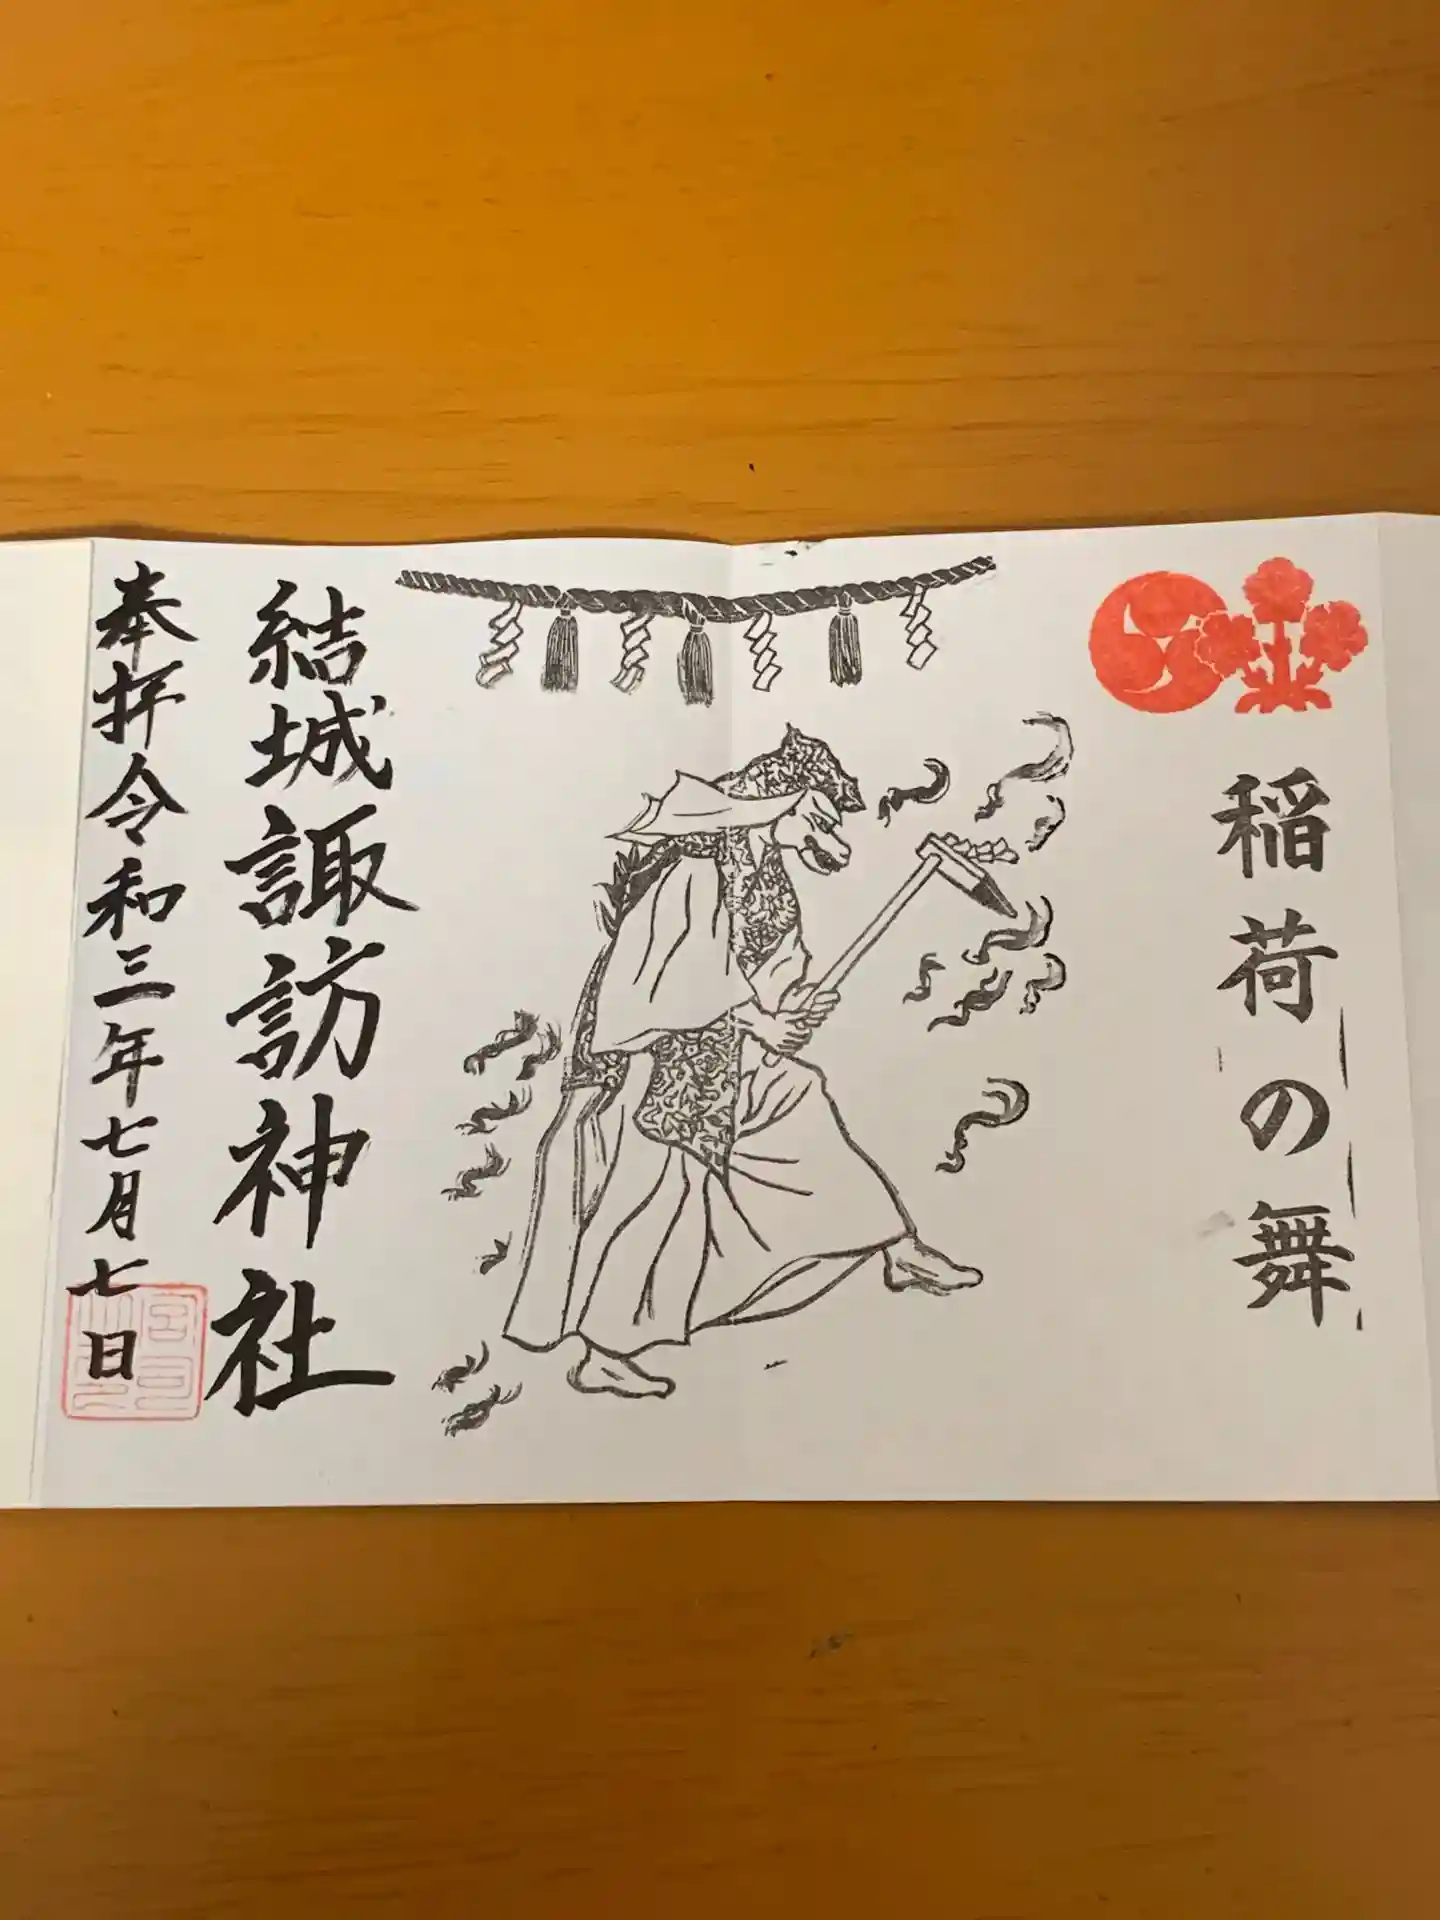 稲荷の舞
結城諏訪神社
奉拝令和三年七月七日